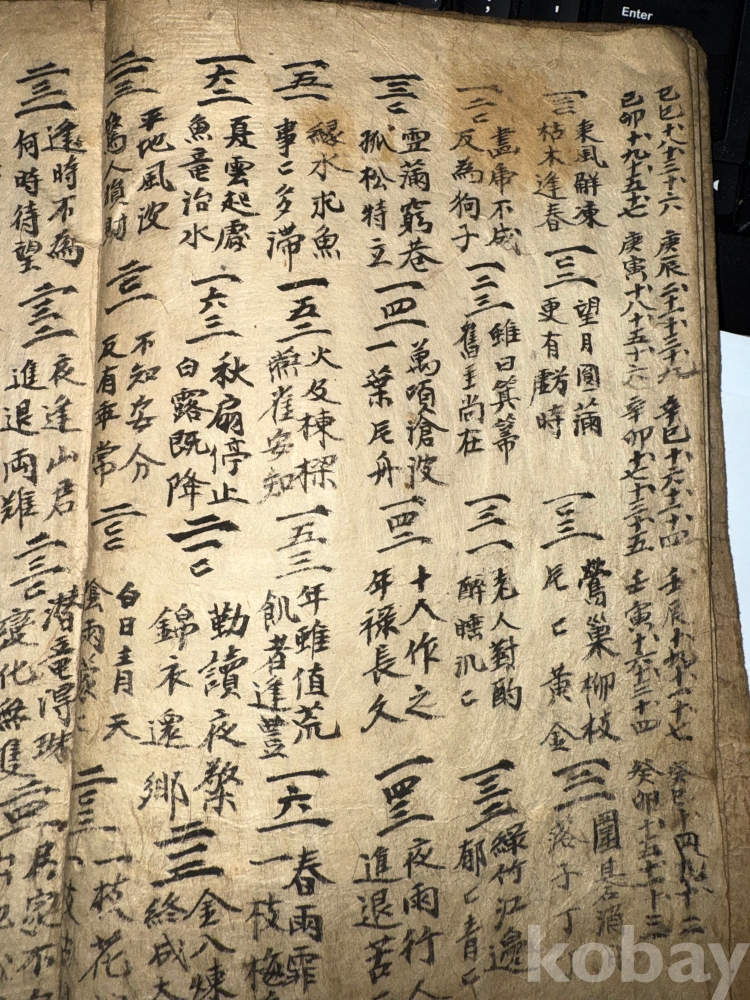 己巳十八十三十六 庚辰二十二十三十九 辛巳十六十三十四 壬辰十九十一十七 癸巳十四
己卯十九十五十七 庚寅十八十五十六 辛卯十七十三十五 壬寅十六十三十四 癸卯十五十七十三
東風解凍
枯木逢春
望月圓滿
更有虧時
鶯巢柳枝
片〻黃金
圍碁消
落子丁
一二〻
畵虎不成
反為狗子
一二三
雖曰箕箒
舊主尚在
一三一
老人對酌
醉睡沉〻
一三二
綠竹江邊
郁〻青〻
一三〻
雪滿窮巷
孤松特立
一四一
萬頃滄波
一葉片舟
一四二
十人作之
年祿長久
一四三
夜雨行人
進退苦
一五一
縁水求魚
事〻多滯
一五二
火及棟樑
燕雀安知
一五三
年雖值荒
飢者逢豊
一六一
春雨霏
一枝梅
一六二
夏雲起處
魚竜治水
一六三
秋扇停止
白露既降
二一〻
勤讀夜
錦衣還鄉
二一二
金入煉
終成大
二〻三
平地風波
驚人損財
二〻一
不知安分
反有乖常
二〻〻
白日青天
陰雨
二〻三
一枝花
二三一
逢時不為
何時待望
二三二
夜逢山君
進退両難
二三〻
潜竜得珠
變化無雙
二四一
居家不
Enter
kobay